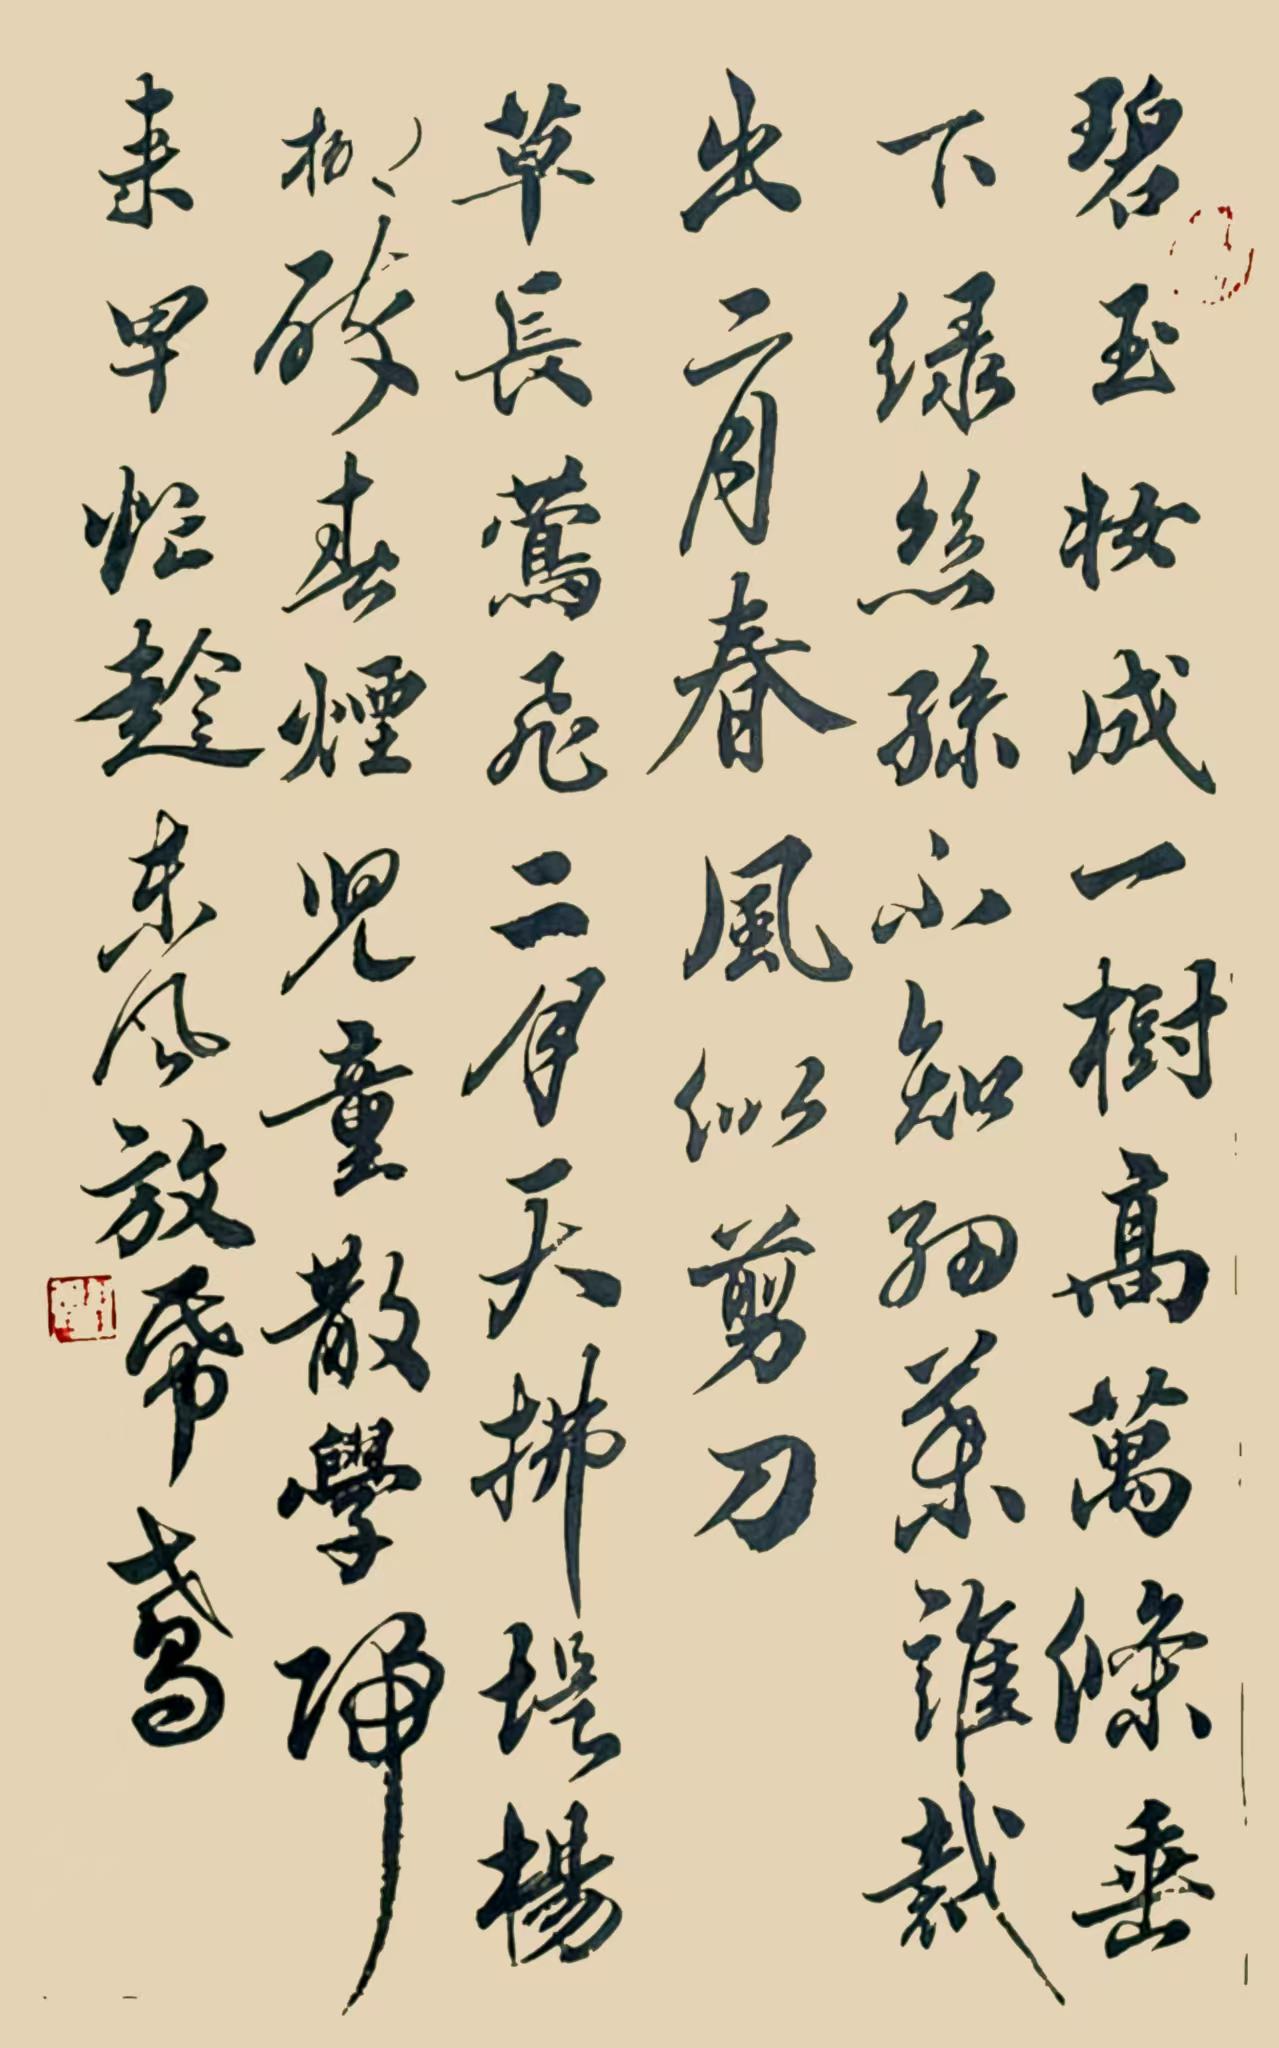 碧玉妝成一樹高萬條垂
下绿絲絲絛不知細葉誰裁
出二月春風似剪刀
草長鶯飛二月天拂堤楊
柳醉春煙兒童散學歸
来早忙趁東风放紙鳶